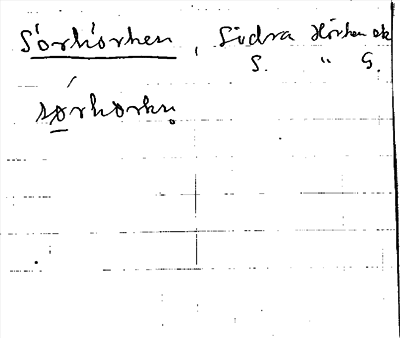 Sörhörken, Södra Hörken ek
S. " G.
sørhørkn̥